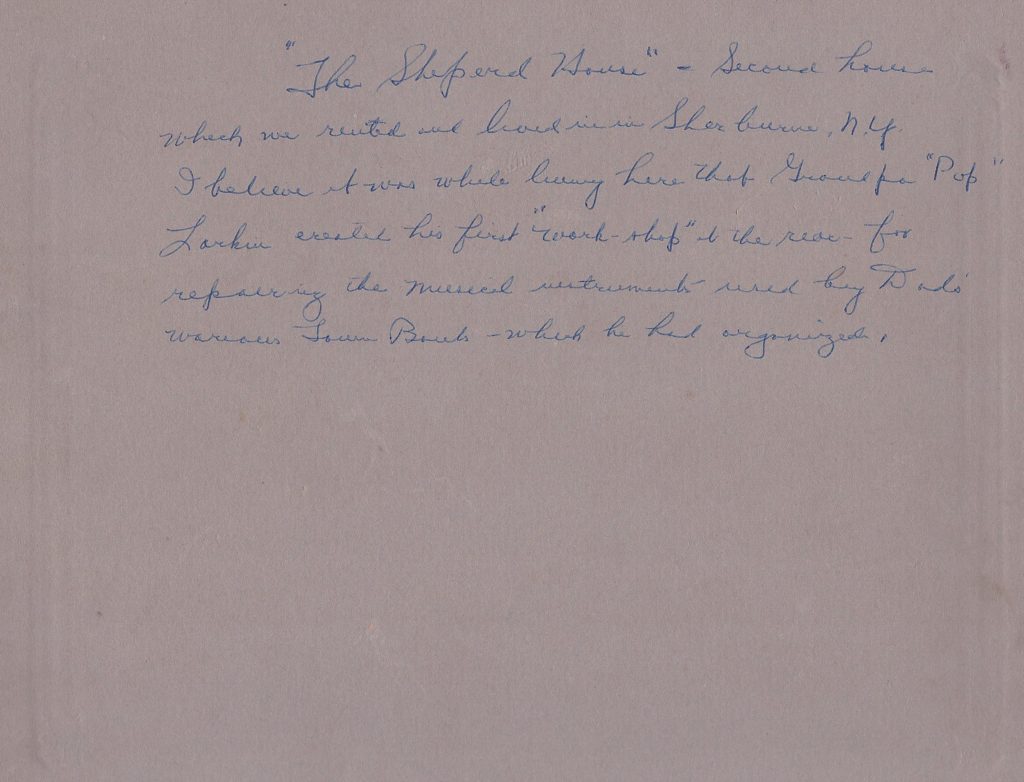 "The Sheperd House" - Second house
which we rented and lived in in Sherburne, N.Y.
I believe it was while living here that Grandpa "Pop"
Larkin created his first "work-shop" at the rear - for
repairing the musical instruments used by Dad's
various Town Bands - which he had organized.